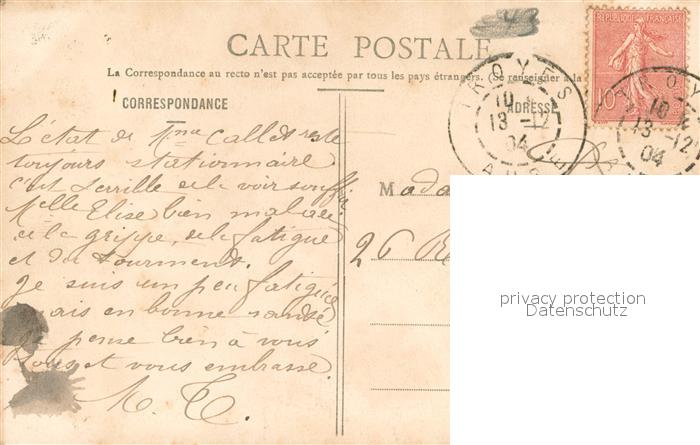 CARTE POSTALE
La Correspondance au recto n'est pas acceptée par tous les pays étrangers. (Se renseigner à la
CORRESPONDANCE
ADRESSE
RÉPUBLIQUE FRANÇAISE
10
TROYES
10
13 -12
04
AUBE
TROY
10
13 -12
04
L'état de Mme Callet reste
toujours stationnaire
c'est terrible de la voir souffrir.
Melle Elise bien malade
de la grippe, de la fatigue
et du tourment.
Je suis un peu fatiguée
mais en bonne santé
Je pense bien à vous
tous et vous embrasse.
M. T.
Mada
26 R
privacy protection
Datenschutz